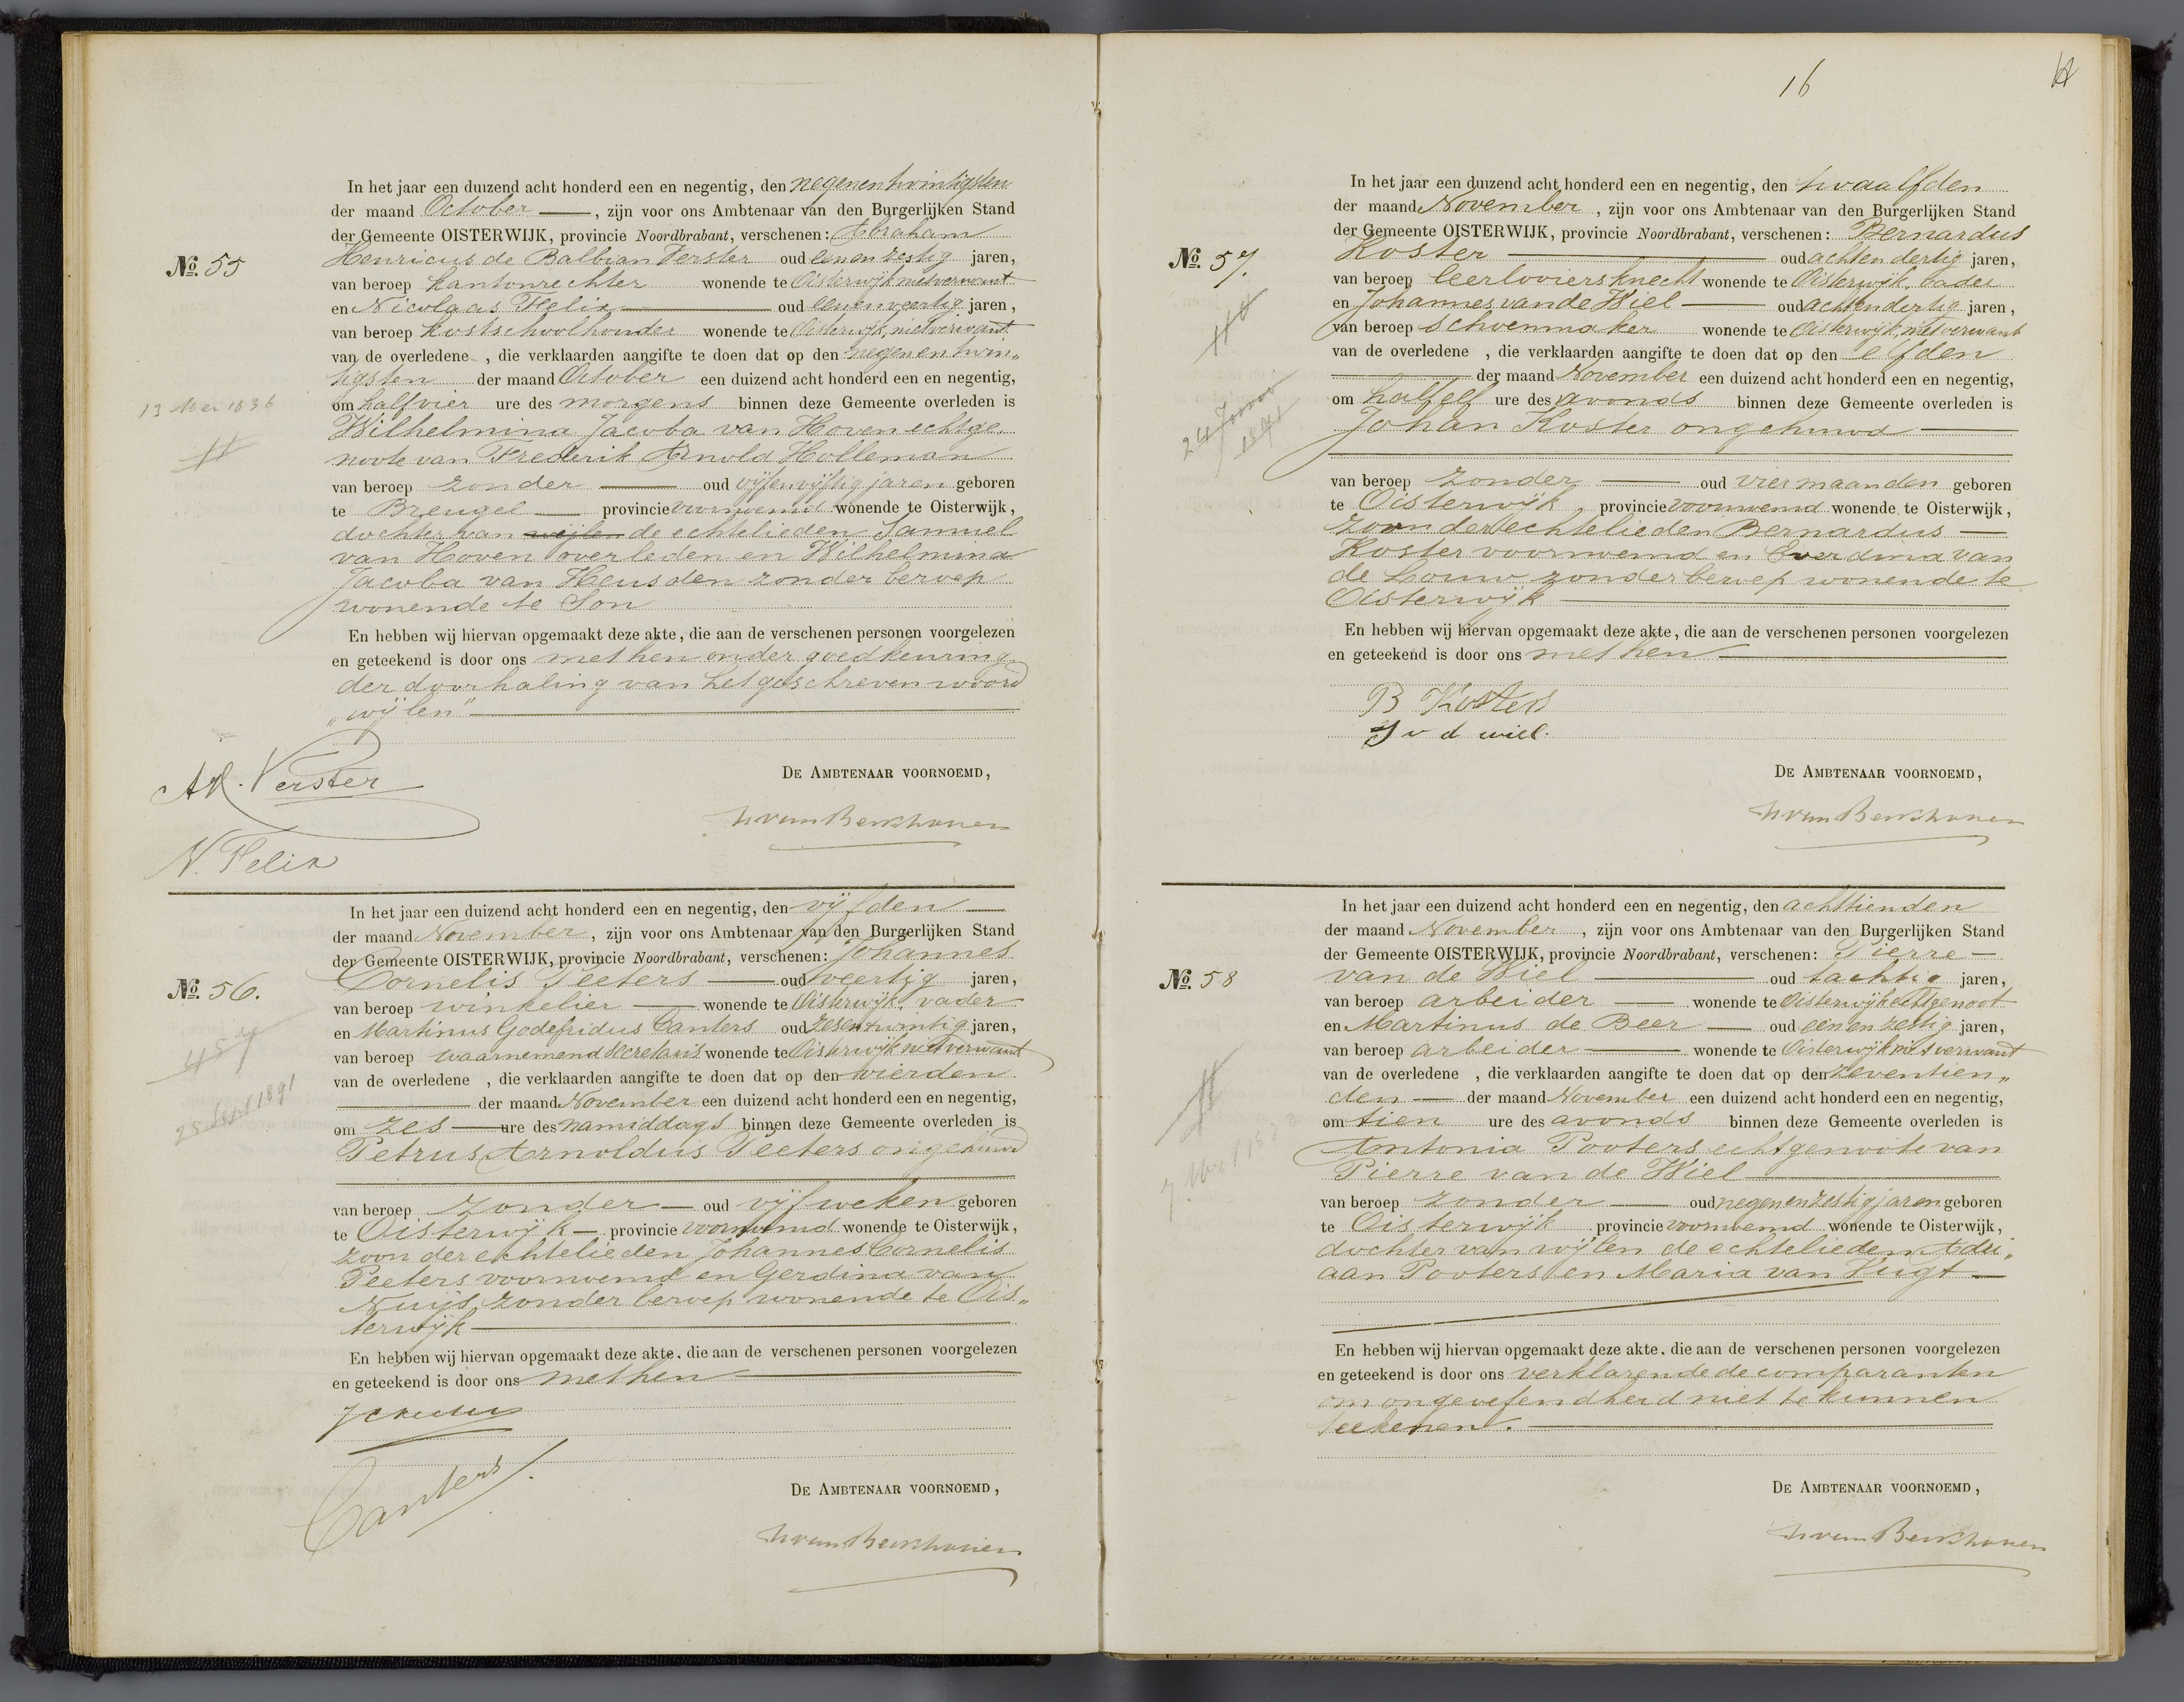 In het jaar een duizend acht honderd een en negentig, den negenentwintigsten
der maand October, zijn voor ons Ambtenaar van den Burgerlijken Stand
der Gemeente OISTERWIJK, provincie Noordbrabant, verschenen: Abraham
No. 55 Henricus de Balbian Verster oud eenenzestig jaren,
van beroep kantonrechter wonende te Oisterwijk niet verwant
en Nicolaas Felix oud eenenveertig jaren,
van beroep kostschoolhouder wonende te Oisterwijk, niet verwant
van de overledene, die verklaarden aangifte te doen dat op den negenentwin„
tigsten der maand October een duizend acht honderd een en negentig,
13 Mei 1836 om half vier ure des morgens binnen deze Gemeente overleden is
Wilhelmina Jacoba van Hoven echtge„
noote van Frederik Arnold Holleman
van beroep zonder oud vijfenvijftig jaren geboren
te Breugel provincie voornoemd wonende te Oisterwijk,
dochter van wijlen de echtelieden Samuel
van Hoven overleden en Wilhelmina
Jacoba van Heusden zonder beroep
wonende te Son
En hebben wij hiervan opgemaakt deze akte, die aan de verschenen personen voorgelezen
en geteekend is door ons met hen onder goedkeuring
der doorhaling van het geschreven woord
„wijlen"
AH. Verster
DE AMBTENAAR VOORNOEMD,
N. Felix
In het jaar een duizend acht honderd een en negentig, den vijfden
der maand November, zijn voor ons Ambtenaar van den Burgerlijken Stand
der Gemeente OISTERWIJK, provincie Noordbrabant, verschenen: Johannes
No. 56. Cornelis Peeters oud veertig jaren,
van beroep winkelier wonende te Oisterwijk, vader
en Martinus Godefridus Canters oud zesentwintig jaren,
van beroep waarnemend secretaris wonende te Oisterwijk niet verwant
van de overledene, die verklaarden aangifte te doen dat op den vierden
der maand November een duizend acht honderd een en negentig,
om zes ure des namiddags binnen deze Gemeente overleden is
Petrus Arnoldus Peeters ongehuwd
van beroep zonder oud vijf weken geboren
te Oisterwijk provincie voornoemd wonende te Oisterwijk,
zoon der echtelieden Johannes Cornelis
Peeters voornoemd en Gerdina van
Nuijs, zonder beroep wonende te Ois„
terwijk
En hebben wij hiervan opgemaakt deze akte, die aan de verschenen personen voorgelezen
en geteekend is door ons met hen
Canters
DE AMBTENAAR VOORNOEMD,
16
In het jaar een duizend acht honderd een en negentig, den twaalfden
der maand November, zijn voor ons Ambtenaar van den Burgerlijken Stand
der Gemeente OISTERWIJK, provincie Noordbrabant, verschenen: Bernardus
No. 57. Koster oud achtendertig jaren,
van beroep leerlooiersknecht wonende te Oisterwijk, vader
en Johannes van de Wiel oud achtendertig jaren,
van beroep schoenmaker wonende te Oisterwijk, niet verwant
van de overledene, die verklaarden aangifte te doen dat op den elfden
der maand November een duizend acht honderd een en negentig,
om half elf ure des avonds binnen deze Gemeente overleden is
Johan Koster ongehuwd
van beroep zonder oud vier maanden geboren
te Oisterwijk provincie voornoemd wonende te Oisterwijk,
zoon der echtelieden Bernardus
Koster voornoemd en Everdina van
de Louw zonder beroep wonende te
Oisterwijk
En hebben wij hiervan opgemaakt deze akte, die aan de verschenen personen voorgelezen
en geteekend is door ons met hen
B Kosters
J v d wiel.
DE AMBTENAAR VOORNOEMD,
In het jaar een duizend acht honderd een en negentig, den achttienden
der maand November, zijn voor ons Ambtenaar van den Burgerlijken Stand
der Gemeente OISTERWIJK, provincie Noordbrabant, verschenen: Pierre
No. 58 van de Wiel oud tachtig jaren,
van beroep arbeider wonende te Oisterwijk echtgenoot
en Martinus de Beer oud eenenzestig jaren,
van beroep arbeider wonende te Oisterwijk niet verwant
van de overledene, die verklaarden aangifte te doen dat op den zeventien„
den der maand November een duizend acht honderd een en negentig,
om tien ure des avonds binnen deze Gemeente overleden is
Antonia Pooters echtgenoote van
Pierre van de Wiel
van beroep zonder oud negenenzestig jaren geboren
te Oisterwijk provincie voornoemd wonende te Oisterwijk,
dochter van wijlen de echtelieden Adri„
aan Pooters en Maria van Vugt
En hebben wij hiervan opgemaakt deze akte, die aan de verschenen personen voorgelezen
en geteekend is door ons verklarende de comparanten
om ongeoefendheid niet te kunnen
teekenen.
DE AMBTENAAR VOORNOEMD,